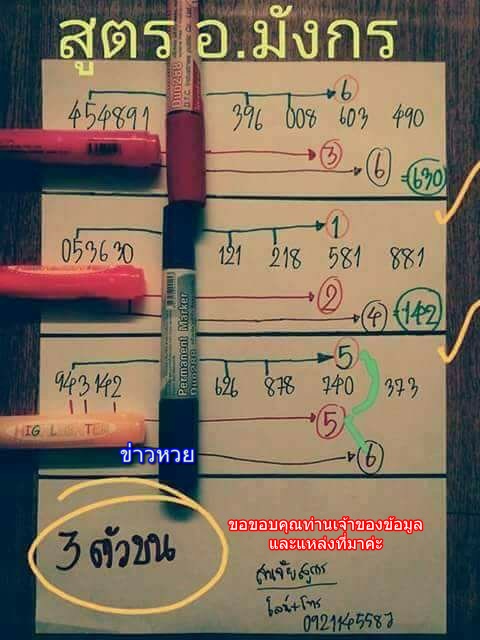 สูตร อ.มังกร
6
454891 396 008 603 490
3
6 =630
1
053630 121 218 581 881
2
4 =142
5
943142 626 878 740 373
5
6
HIGHLIGHTER
Permanent Marker
ข่าวหวย
3 ตัวบน
ขอขอบคุณท่านเจ้าของข้อมูล
และแหล่งที่มาค่ะ